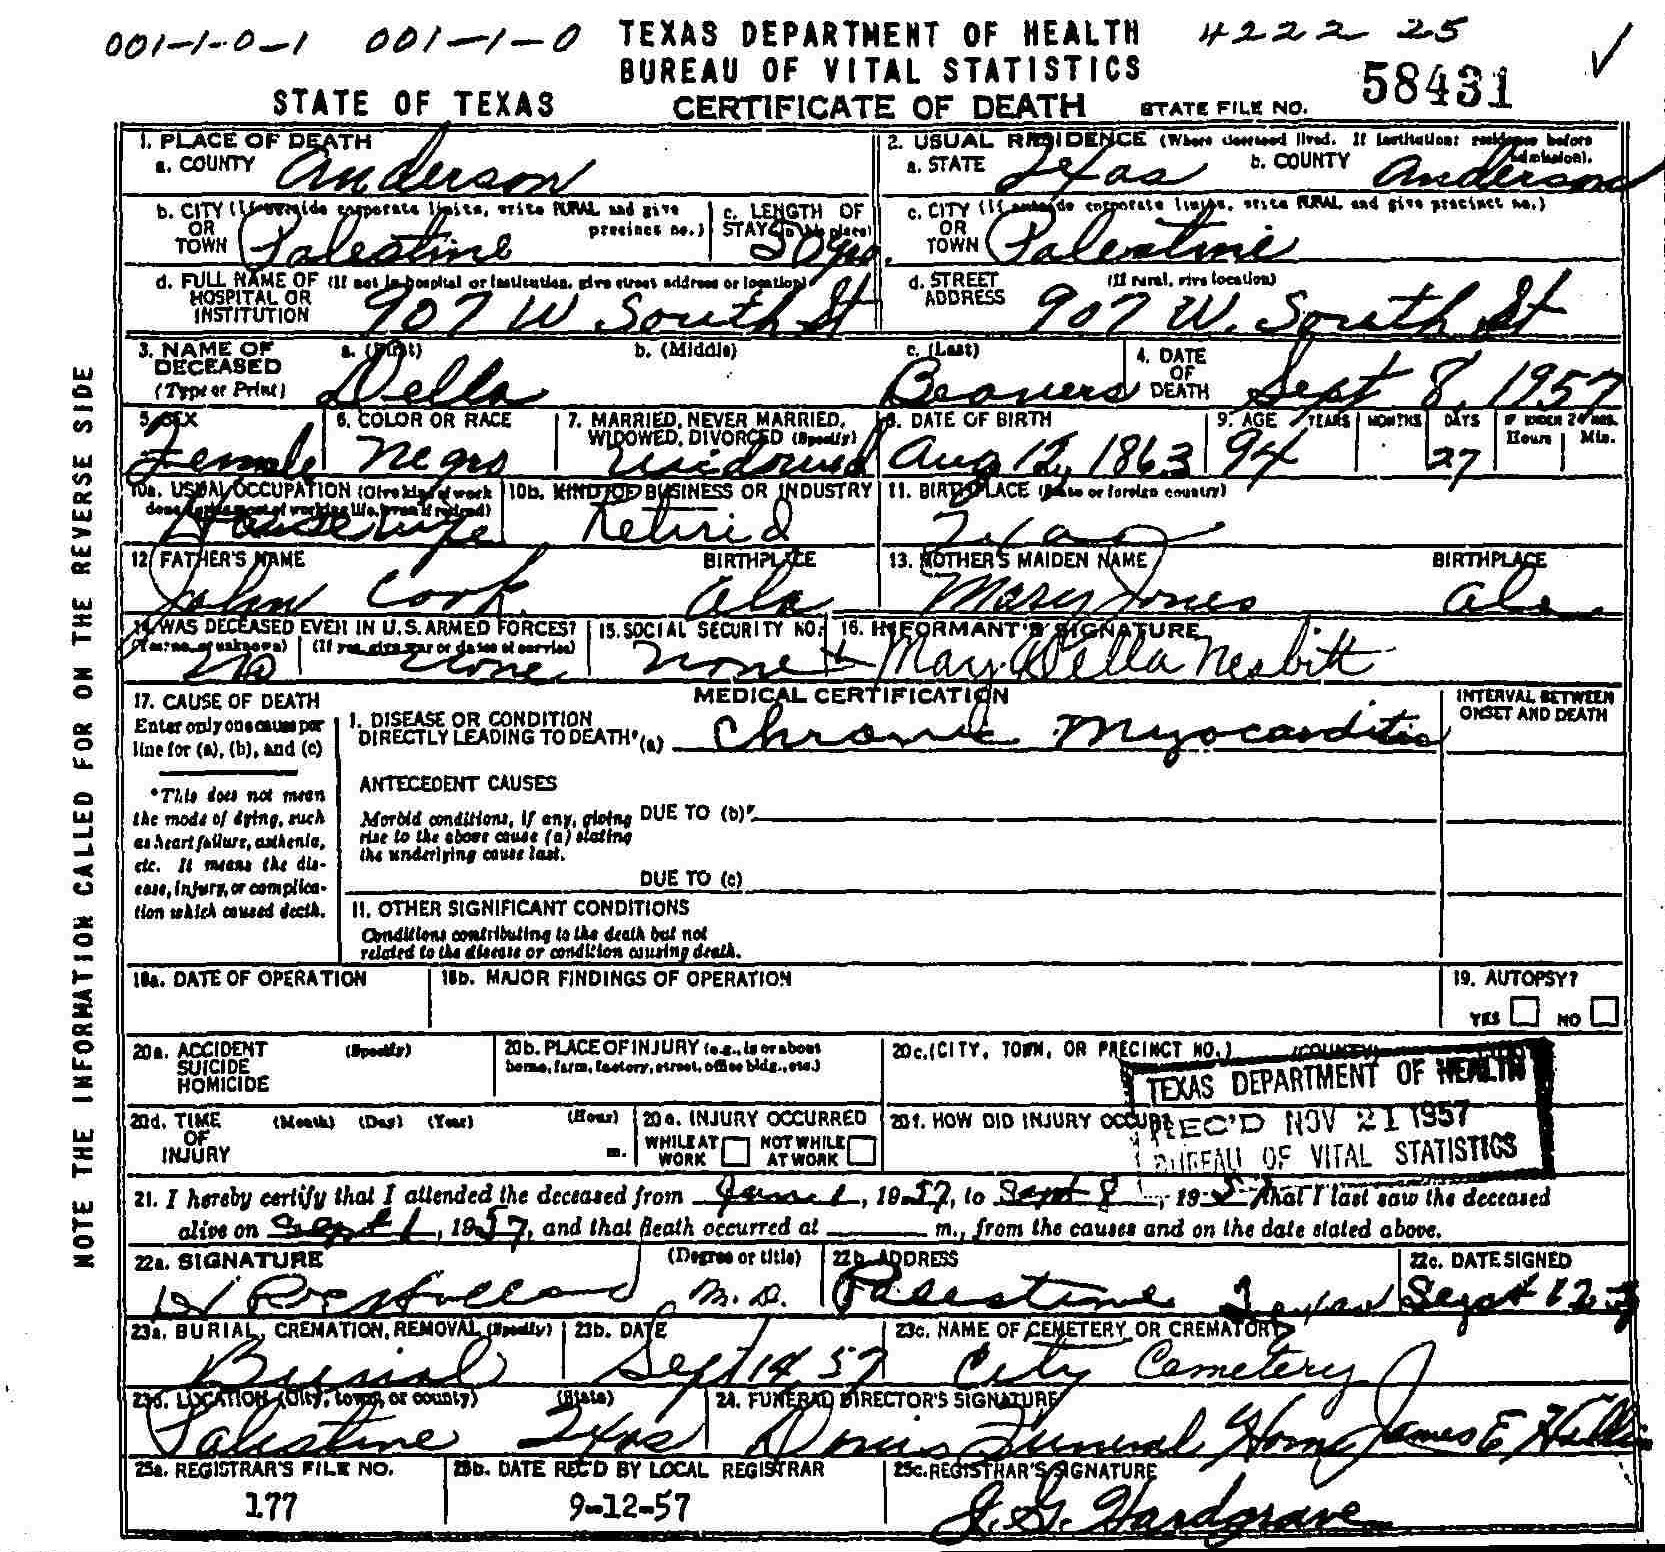 001-1-0-1 001-1-0 TEXAS DEPARTMENT OF HEALTH 4222 25 ✓
BUREAU OF VITAL STATISTICS
STATE OF TEXAS CERTIFICATE OF DEATH STATE FILE NO. 58431
NOTE THE INFORMATION CALLED FOR ON THE REVERSE SIDE
1. PLACE OF DEATH
a. COUNTY Anderson
2. USUAL RESIDENCE (Where deceased lived. If institution: residence before admission).
a. STATE Texas b. COUNTY Anderson
b. CITY (If outside corporate limits, write RURAL and give precinct no.)
OR
TOWN Palestine
c. LENGTH OF
STAY (in this place) 50 yrs.
c. CITY (If outside corporate limits, write RURAL and give precinct no.)
OR
TOWN Palestine
d. FULL NAME OF (If not in hospital or institution, give street address or location)
HOSPITAL OR
INSTITUTION 907 W South St
d. STREET (If rural, give location)
ADDRESS 907 W. South St
3. NAME OF a. (First) b. (Middle) c. (Last)
DECEASED
(Type or Print) Della Beavers
4. DATE
OF
DEATH Sept 8, 1957
5. SEX 6. COLOR OR RACE 7. MARRIED, NEVER MARRIED,
WIDOWED, DIVORCED (Specify)
8. DATE OF BIRTH 9. AGE YEARS MONTHS DAYS IF UNDER 24 HRS.
Hours Min.
Female Negro Widowed Aug 12, 1863 94 27
10a. USUAL OCCUPATION (Give kind of work
done during most of working life, even if retired)
Housewife
10b. KIND OF BUSINESS OR INDUSTRY
Retired
11. BIRTHPLACE (State or foreign country)
Texas
12. FATHER'S NAME BIRTHPLACE
John Cook Ala
13. MOTHER'S MAIDEN NAME BIRTHPLACE
Mary Jones Ala
14. WAS DECEASED EVER IN U.S. ARMED FORCES?
(Yes, no, or unknown) (If yes, give war or dates of service)
No None
15. SOCIAL SECURITY NO.
None
16. INFORMANT'S SIGNATURE
May Della Nesbitt
17. CAUSE OF DEATH
Enter only one cause per
line for (a), (b), and (c)
*This does not mean
the mode of dying, such
as heart failure, asthenia,
etc. It means the dis-
ease, injury, or complica-
tion which caused death.
MEDICAL CERTIFICATION
INTERVAL BETWEEN
ONSET AND DEATH
I. DISEASE OR CONDITION
DIRECTLY LEADING TO DEATH* (a) Chronic Myocarditis
ANTECEDENT CAUSES
Morbid conditions, if any, giving
rise to the above cause (a) stating
the underlying cause last.
DUE TO (b)
DUE TO (c)
II. OTHER SIGNIFICANT CONDITIONS
Conditions contributing to the death but not
related to the disease or condition causing death.
18a. DATE OF OPERATION 18b. MAJOR FINDINGS OF OPERATION 19. AUTOPSY?
YES NO
20a. ACCIDENT (Specify)
SUICIDE
HOMICIDE
20b. PLACE OF INJURY (e.g., in or about
home, farm, factory, street, office bldg., etc.)
20c. (CITY, TOWN, OR PRECINCT NO.) (COUNTY)
TEXAS DEPARTMENT OF HEALTH
REC'D NOV 21 1957
BUREAU OF VITAL STATISTICS
20d. TIME (Month) (Day) (Year) (Hour)
OF
INJURY m.
20e. INJURY OCCURRED
WHILE AT WORK NOT WHILE AT WORK
20f. HOW DID INJURY OCCUR?
21. I hereby certify that I attended the deceased from June 1, 1957, to Sept 8, 195 that I last saw the deceased
alive on Sept 1, 1957, and that death occurred at m., from the causes and on the date stated above.
22a. SIGNATURE (Degree or title) 22b. ADDRESS 22c. DATE SIGNED
M.D. Palestine Texas Sept 12
23a. BURIAL, CREMATION, REMOVAL (Specify) 23b. DATE 23c. NAME OF CEMETERY OR CREMATORY
Burial Sept 14, 57 City Cemetery
23d. LOCATION (City, town, or county) (State)
Palestine Texas
24. FUNERAL DIRECTOR'S SIGNATURE
Funeral Home James E
25a. REGISTRAR'S FILE NO. 25b. DATE REC'D BY LOCAL REGISTRAR 25c. REGISTRAR'S SIGNATURE
177 9-12-57 Hardgrave